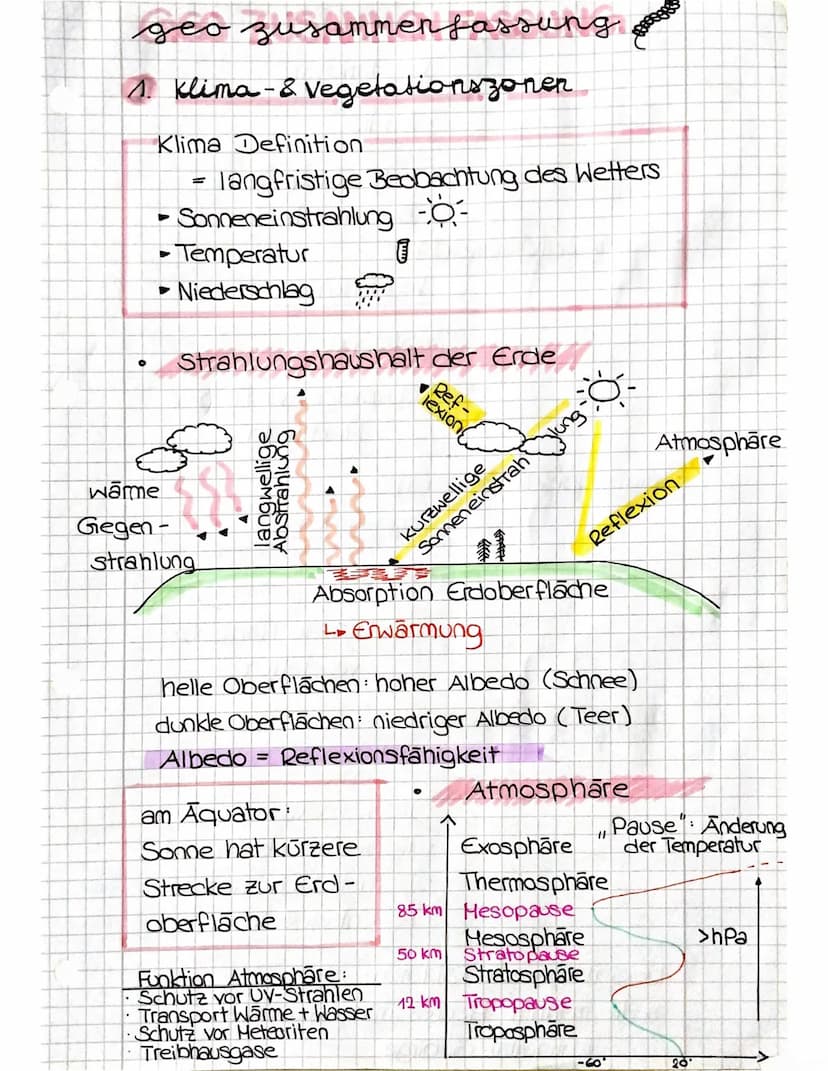 geo zusammenfassung
1. Klima-& vegetationszonen
Klima Definition
= langfristige Beobachtung des Wetters
▸ Sonneneinstrahlung
▸ Temperatur
▸ Niederschlag
• Strahlungshaushalt der Erde
Ref-
lexion
langwellige
Abstrahlung
kurzwellige
Sonneneinstrah
lung
Atmosphäre
Reflexion
Wärme
Gegen-
strahlung
Absorption Erdoberfläche
↳ Erwärmung
helle Oberflächen: hoher Albedo (Schnee)
dunkle Oberflächen: niedriger Albedo (Teer)
Albedo = Reflexionsfähigkeit
am Äquator:
Sonne hat kürzere
Strecke zur Erd-
oberfläche
Funktion Atmosphäre:
· Schutz vor UV-Strahlen
· Transport Wärme + Wasser
· Schutz vor Meteoriten
· Treibhausgase
• Atmosphäre
„Pause": Änderung
der Temperatur
Exosphäre
Thermosphäre
85 km Mesopause
Mesosphäre
50 km Stratopause
Stratosphäre
12 km Tropopause
Troposphäre
>hPa
-60° 20°